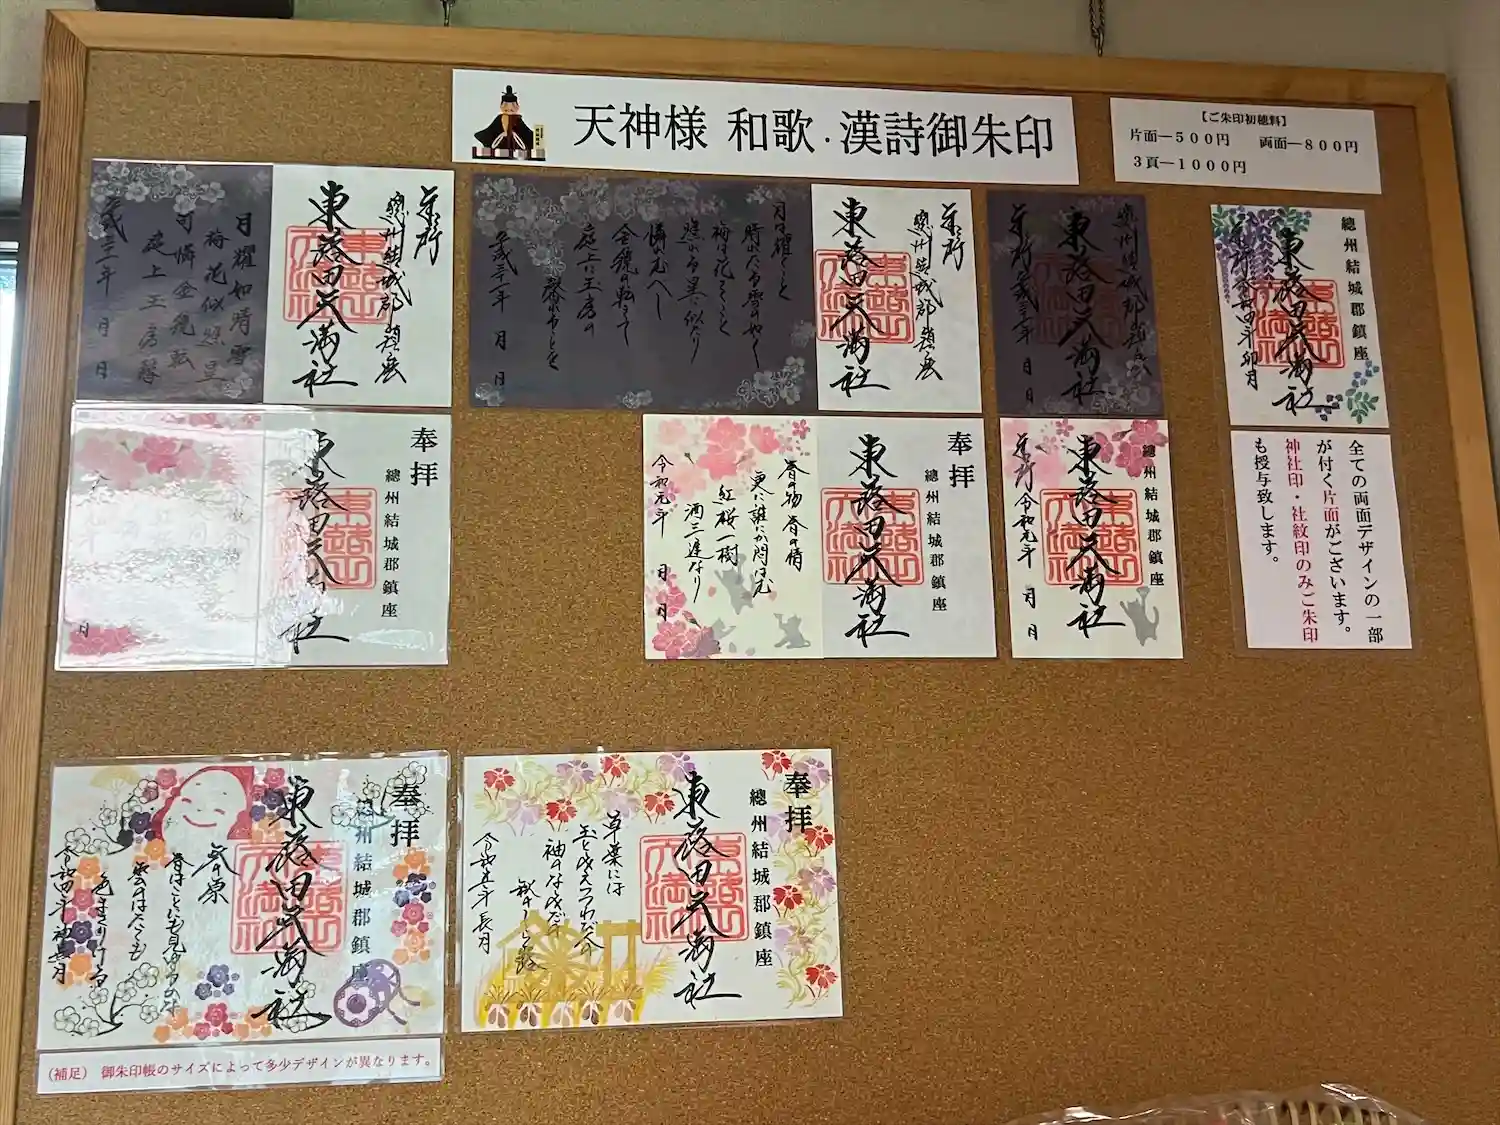 天神様 和歌・漢詩御朱印
【ご朱印初穂料】
片面―500円 両面―800円
3頁―1000円
奉拝
總州結城郡鎮座
東蕗田天満社
月耀如晴雪
梅花似照星
可憐金鏡転
庭上玉房馨
平成三十一年 月 日
奉拝
總州結城郡鎮座
東蕗田天満社
月は耀くこと
晴れたる雪の如く
梅は花さくこと
照れる星に似たり
憐れむべし
金鏡の転じて
庭上に玉房の
馨れることを
平成三十一年 月 日
總州結城郡鎮座
東蕗田天満社
奉拝 平成三十一年 月 日
總州結城郡鎮座
東蕗田天満社
令和四年卯月
全ての両面デザインの一部
が付く片面がございます。
神社印・社紋印のみご朱印
も授与致します。
奉拝
總州結城郡鎮座
東蕗田天満社
月
奉拝
總州結城郡鎮座
東蕗田天満社
春の物 春の情
更に誰にか問はむ
紅桜一樹
酒三遅なり
令和元年 月 日
總州結城郡鎮座
東蕗田天満社
奉拝 令和元年 月 日
奉拝
總州結城郡鎮座
東蕗田天満社
春原
令和四年
奉拝
總州結城郡鎮座
東蕗田天満社
草葉には
玉と
袖の
令和五年長月
(補足) 御朱印帳のサイズによって多少デザインが異なります。